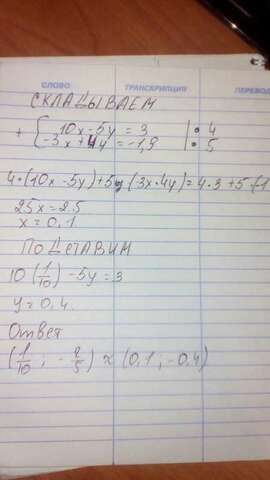 СЛОВО ТРАНСКРИПЦИЯ ПЕРЕВОД
СКЛАДЫВАЕМ
+ { 10x - 5y = 3 | • 4
-3x + 4y = -1,9 | • 5
4•(10x - 5y) + 5y (3x•4y) = 4•3 + 5•(1
25x = 2.5
x = 0,1
ПОДСТАВИМ
10 (1/10) - 5y = 3
y = 0,4.
Ответ
(1/10 ; - 2/5) ≈ (0,1 ; -0,4)